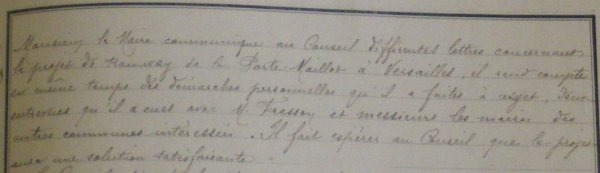 Monsieur le Maire communique au Conseil différentes lettres concernant
le projet de tramway de la Porte Maillot à Versailles, il rend compte
en même temps des démarches personnelles qu'il a faites à ce sujet, deux
entrevues qu'il a eues avec M. et messieurs les maires des
autres communes intéressées. Il fait espérer au Conseil que le projet
aura une solution satisfaisante.